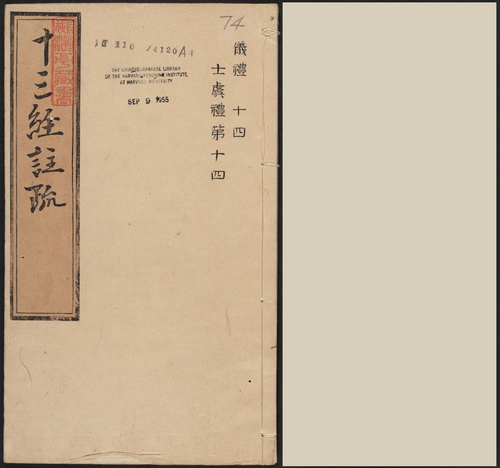 74
儀禮 十四
士虞禮第十四
THE CHINESE-JAPANESE LIBRARY
OF THE HARVARD-YENCHING INSTITUTE
AT HARVARD UNIVERSITY
SEP 9 1955
十三經註疏